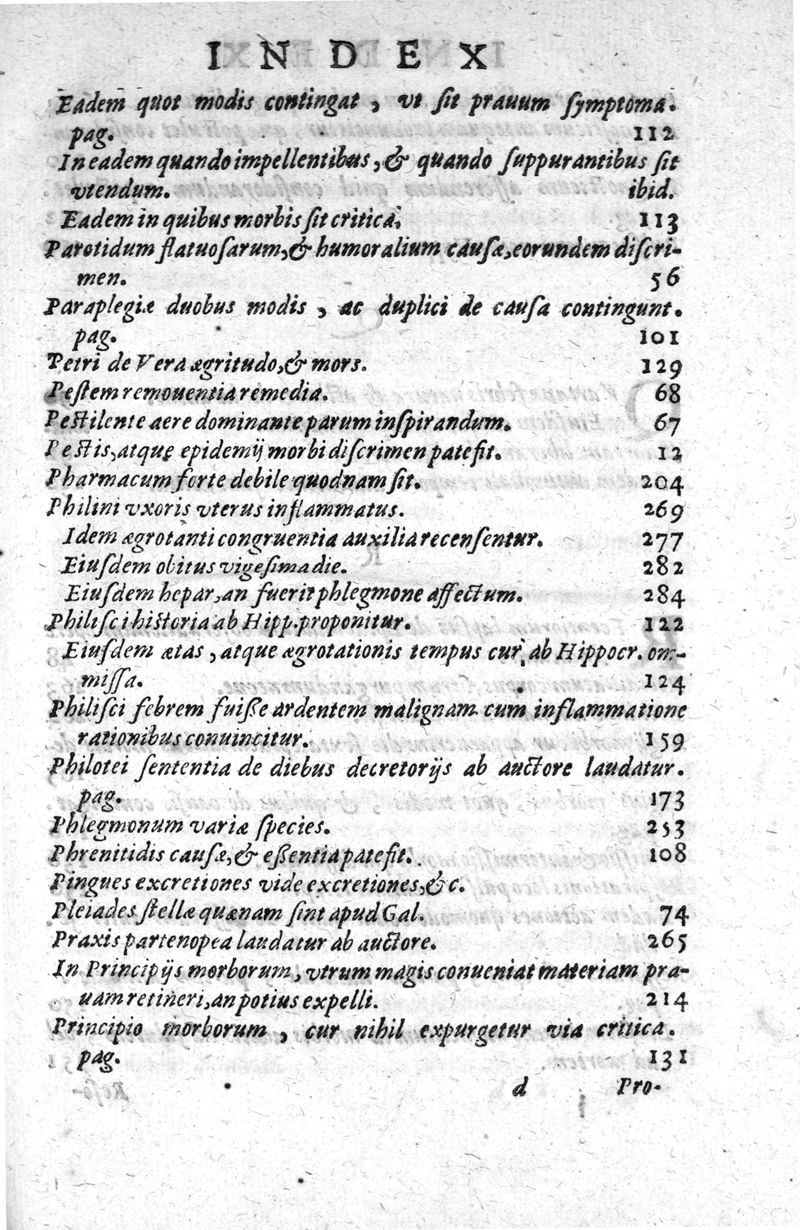 INDEX
Eadem quot modis contingat, vt sit prauum symptoma.
pag. 112
In eadem quando impellentibus, & quando suppurantibus sit
vtendum. ibid.
Eadem in quibus morbis sit critica. 113
Parotidum flatuosarum, & humoralium causæ, eorundem discri-
men. 56
Paraplegiæ duobus modis, ac duplici de causa contingunt.
pag. 101
Petri de Vera ægritudo, & mors. 129
Pestem remouentia remedia. 68
Pestilente aere dominante parum inspirandum. 67
Pestis, atque epidemij morbi discrimen patefit. 12
Pharmacum forte debile quodnam sit. 204
Philini vxoris vterus inflammatus. 269
Idem ægrotanti congruentia auxilia recensentur. 277
Eiusdem obitus vigesima die. 282
Eiusdem hepar, an fuerit phlegmone affectum. 284
Philisci historia ab Hipp. proponitur. 122
Eiusdem ætas, atque ægrotationis tempus cur ab Hippocr. om-
missa. 124
Philisci febrem fuisse ardentem malignam cum inflammatione
rationibus conuincitur. 159
Philotei sententia de diebus decretorijs ab auctore laudatur.
pag. 173
Phlegmonum variæ species. 253
Phrenitidis causæ, & essentia patefit. 108
Pingues excretiones vide excretiones, &c.
Pleiades stellæ quænam sint apud Gal. 74
Praxis partenopea laudatur ab auctore. 265
In Principijs morborum, vtrum magis conueniat materiam pra-
uam retineri, an potius expelli. 214
Principio morborum, cur nihil expurgetur via critica.
pag. 131
d Pro-